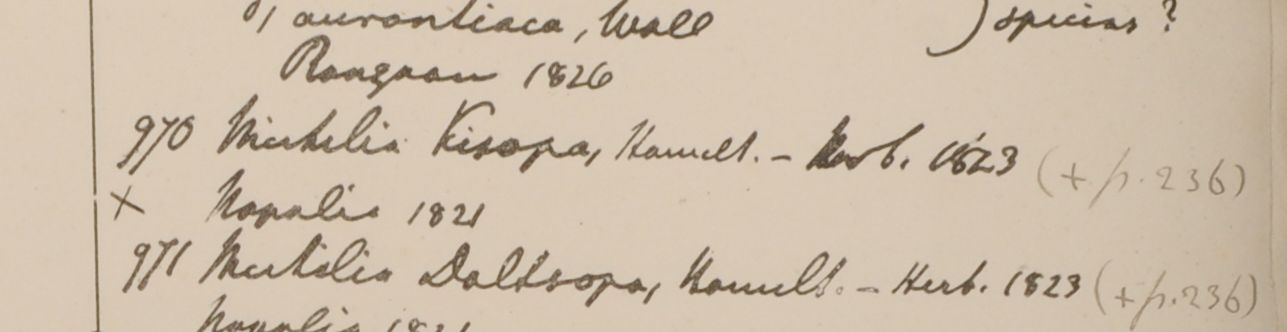 aurantiaca, Wall } species?
Rangoon 1826
970 Michelia Kisopa, Hamilt. - Herb. 1823 (+ p. 236)
+ Napalia 1821
971 Michelia Doltsopa, Hamilt. - Herb. 1823 (+ p. 236)
Napalia 1821